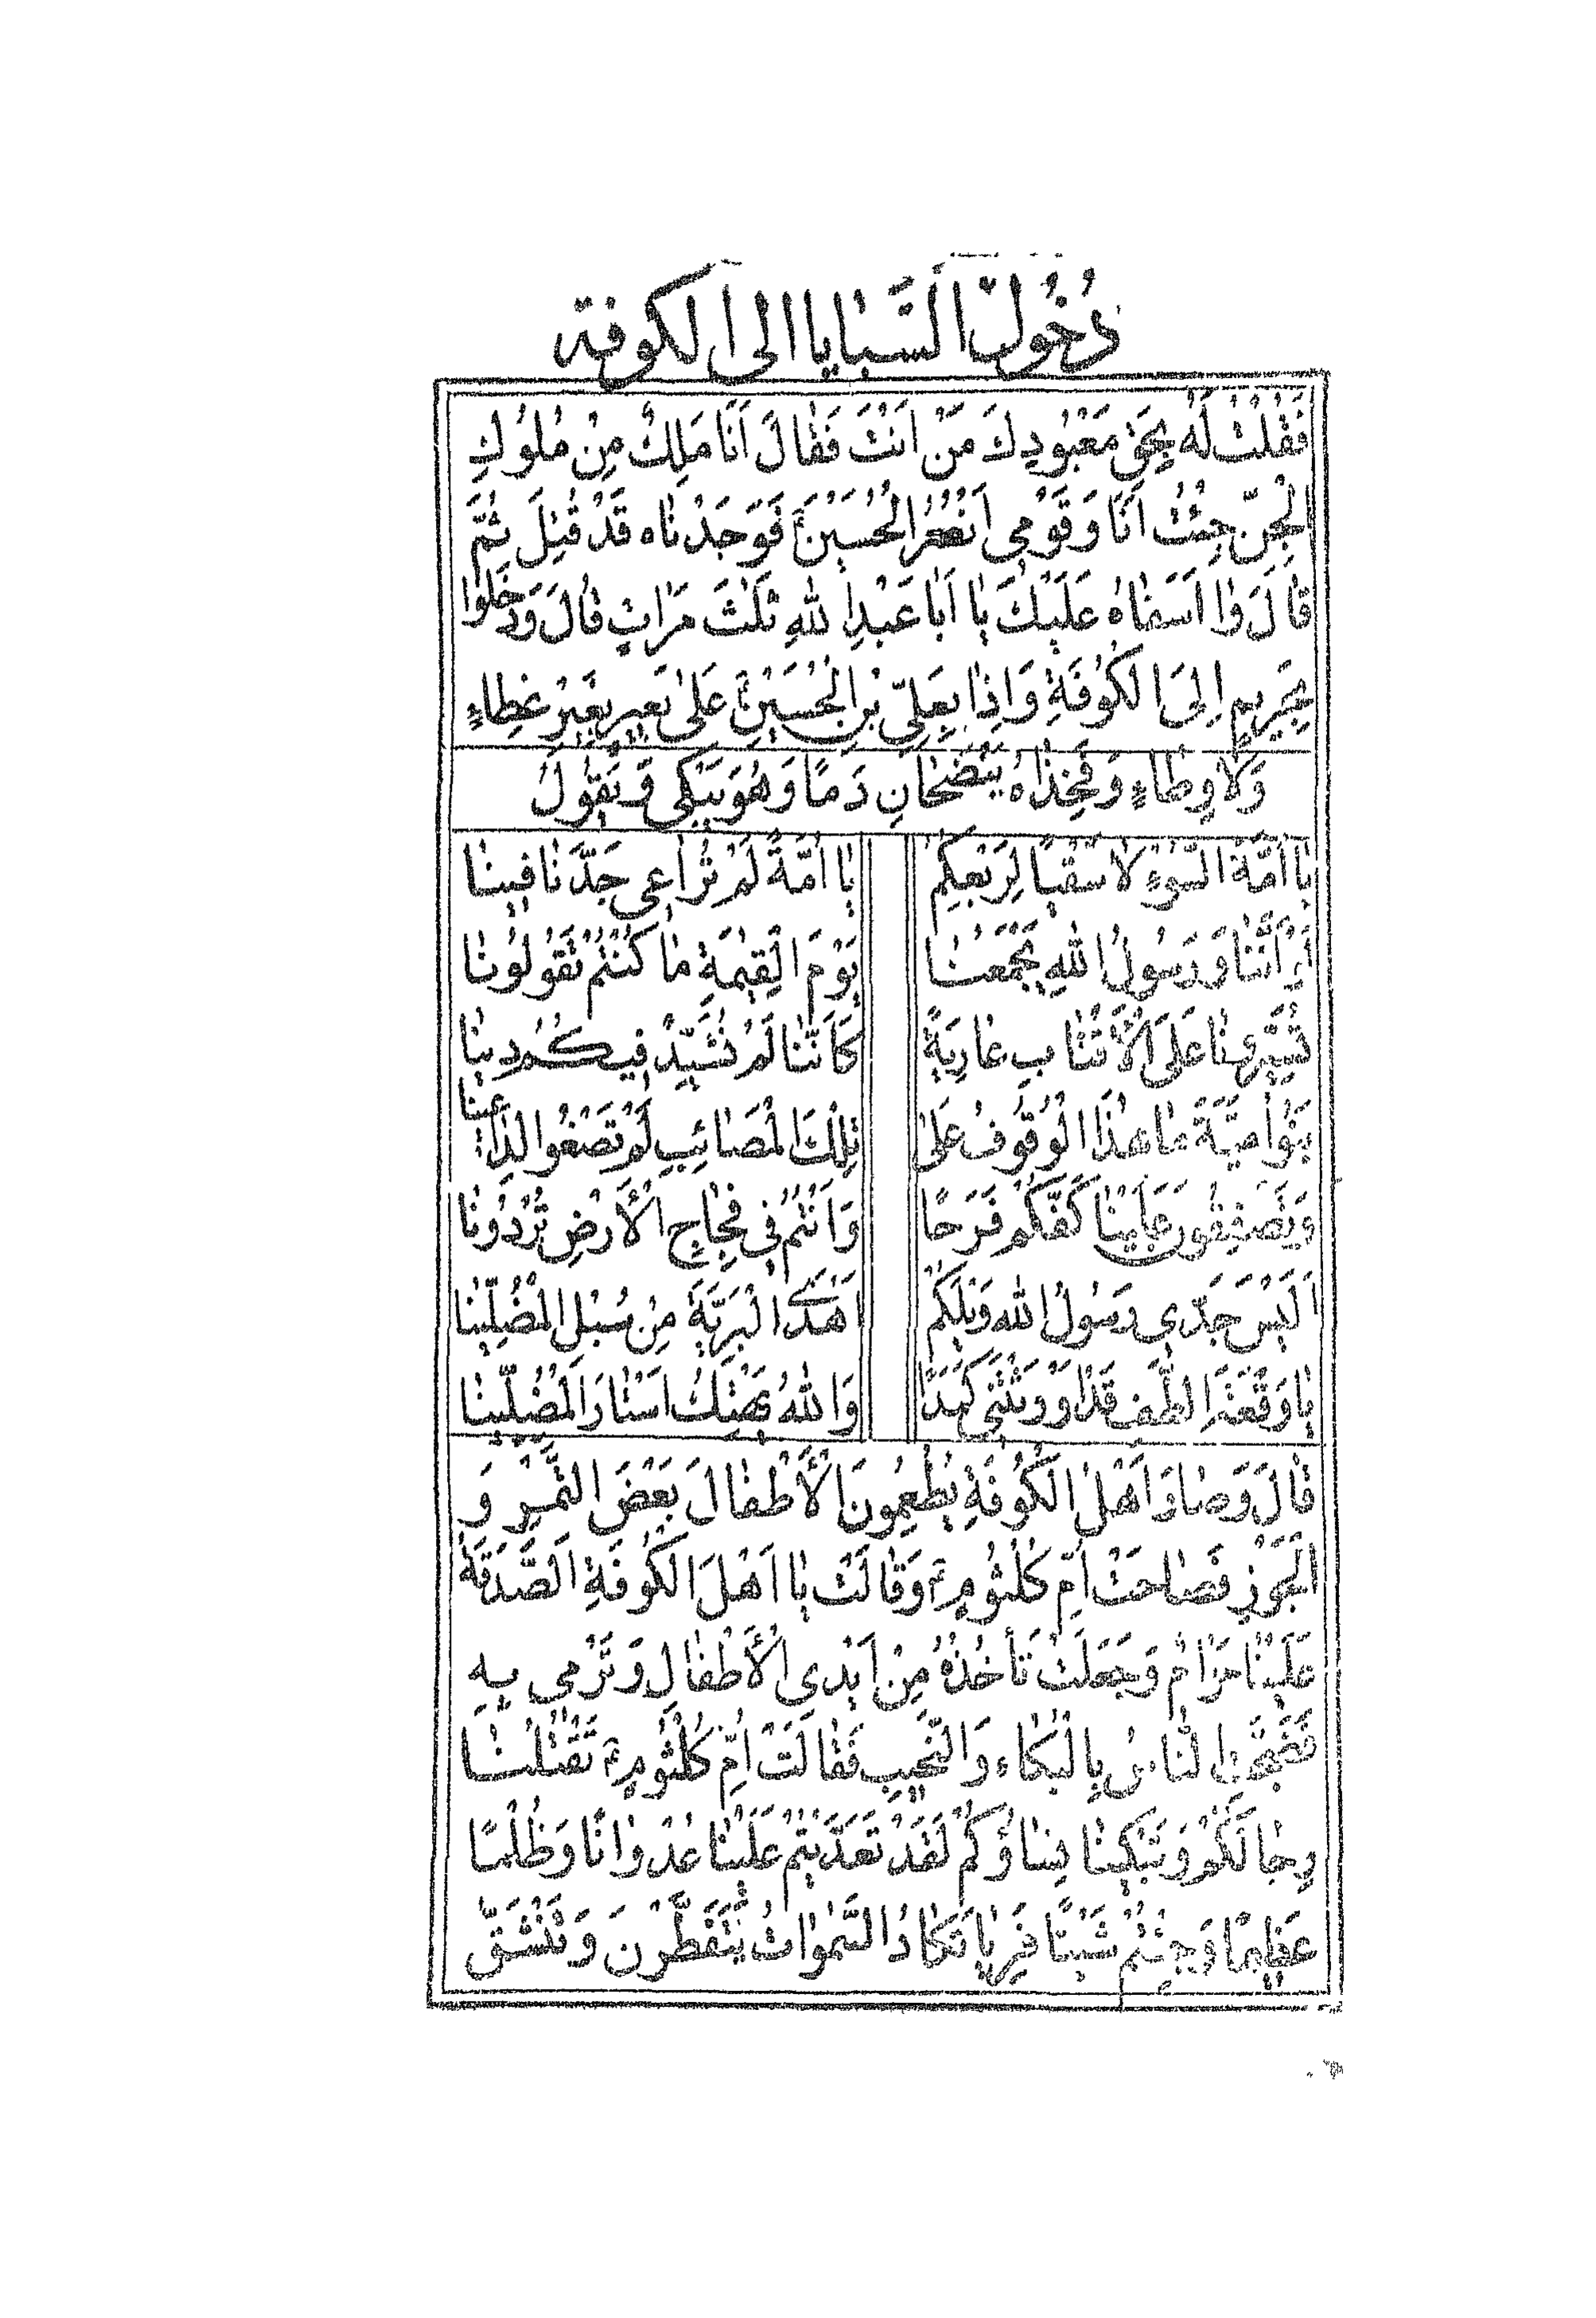 دُخُولُ السَّبَايَا اِلَى الْكُوفَةِ
فَقُلْتُ لَهُ بِحَقِّ مَعْبُودِكَ مَنْ اَنْتَ فَقَالَ اَنَا مَلِكٌ مِنْ مُلُوكِ
الْجِنِّ جِئْتُ اَنَا وَقَوْمِي اَنْصُرُ الْحُسَيْنَ ع فَوَجَدْنَاهُ قَدْ قُتِلَ ثُمَّ
قَالَ وَا اَسَفَاهُ عَلَيْكَ يَا اَبَا عَبْدِ اللهِ ثَلٰثَ مَرَّاتٍ قَالَ وَدَخَلُوا
بِحَرِيمِ اِلَى الْكُوفَةِ وَاِذَا بِعَلِيِّ بْنِ الْحُسَيْنِ ع عَلَى بَعِيرٍ بِغَيْرِ غِطَاءٍ
وَلَا وِطَاءٍ وَفَخِذَاهُ يَنْضَحَانِ دَمًا وَهُوَ يَبْكِي وَ يَقُولُ
يَا اُمَّةَ السَّوْءِ لَا سَقْيًا لِرَبْعِكُمْ يَا اُمَّةً لَمْ تُرَاعِي جَدَّنَا فِينَا
لَوْ اَنَّنَا وَرَسُولُ اللهِ يَجْمَعُنَا يَوْمَ الْقِيٰمَةِ مَا كُنْتُمْ تَقُولُونَا
تُسَيِّرُونَا عَلَى الْاَقْتَابِ عَارِيَةً كَاَنَّنَا لَمْ نُشَيِّدْ فِيكُمْ دِينَا
بَنُو اُمَيَّةَ مَا هٰذَا الْوُقُوفُ عَلَى تِلْكَ الْمَصَائِبِ لَمْ تَصْغُوا لِدَاعِينَا
وَتُصَفِّقُونَ عَلَيْنَا كَفَّكُمْ فَرَحًا وَاَنْتُمْ فِي فِجَاجِ الْاَرْضِ تُرْدُونَا
اَلَيْسَ جَدِّي رَسُولُ اللهِ وَيْلَكُمْ اَهْدَى الْبَرِيَّةَ مِنْ سُبُلِ الْمُضِلِّينَا
يَا وَقْعَةَ الطَّفِّ قَدْ اَوْرَثْتِنِي كَمَدًا وَاللهُ يَهْتِكُ اَسْتَارَ الْمُضِلِّينَا
قَالَ وَصَارَ اَهْلُ الْكُوفَةِ يُطْعِمُونَ الْاَطْفَالَ بَعْضَ التَّمْرِ وَ
الْجَوْزِ فَصَاحَتْ اُمُّ كُلْثُومٍ ع وَقَالَتْ يَا اَهْلَ الْكُوفَةِ الصَّدَقَةُ
عَلَيْنَا حَرَامٌ وَجَعَلَتْ تَأْخُذُهُ مِنْ اَيْدِي الْاَطْفَالِ وَتَرْمِي بِهِ
فَضَجَّ النَّاسُ بِالْبُكَاءِ وَالنَّحِيبِ فَقَالَتْ اُمُّ كُلْثُومٍ ع تَقْتُلُنَا
رِجَالُكُمْ وَتَبْكِينَا نِسَاؤُكُمْ لَقَدْ تَعَدَّيْتُمْ عَلَيْنَا عُدْوَانًا وَظُلْمًا
عَظِيمًا وَجِئْتُمْ شَيْئًا فَرِيًّا تَكَادُ السَّمٰوَاتُ يَتَفَطَّرْنَ وَتَنْشَقُّ